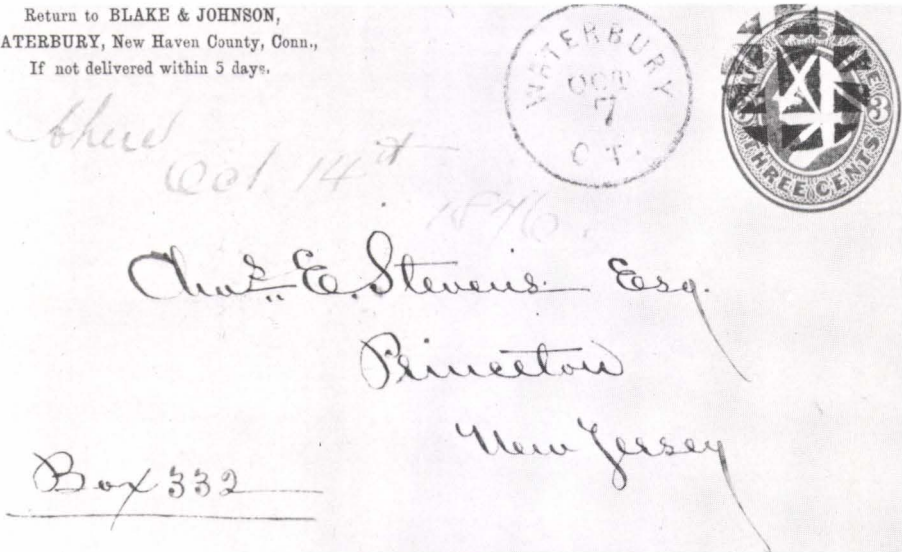 Return to BLAKE & JOHNSON,
ATERBURY, New Haven County, Conn.,
If not delivered within 5 days.
WATERBURY
OCT
7
CT.
3
THREE CENTS
Oct. 14th
1876
Chas. E. Stevens Esq.
Princeton
New Jersey
Box 332